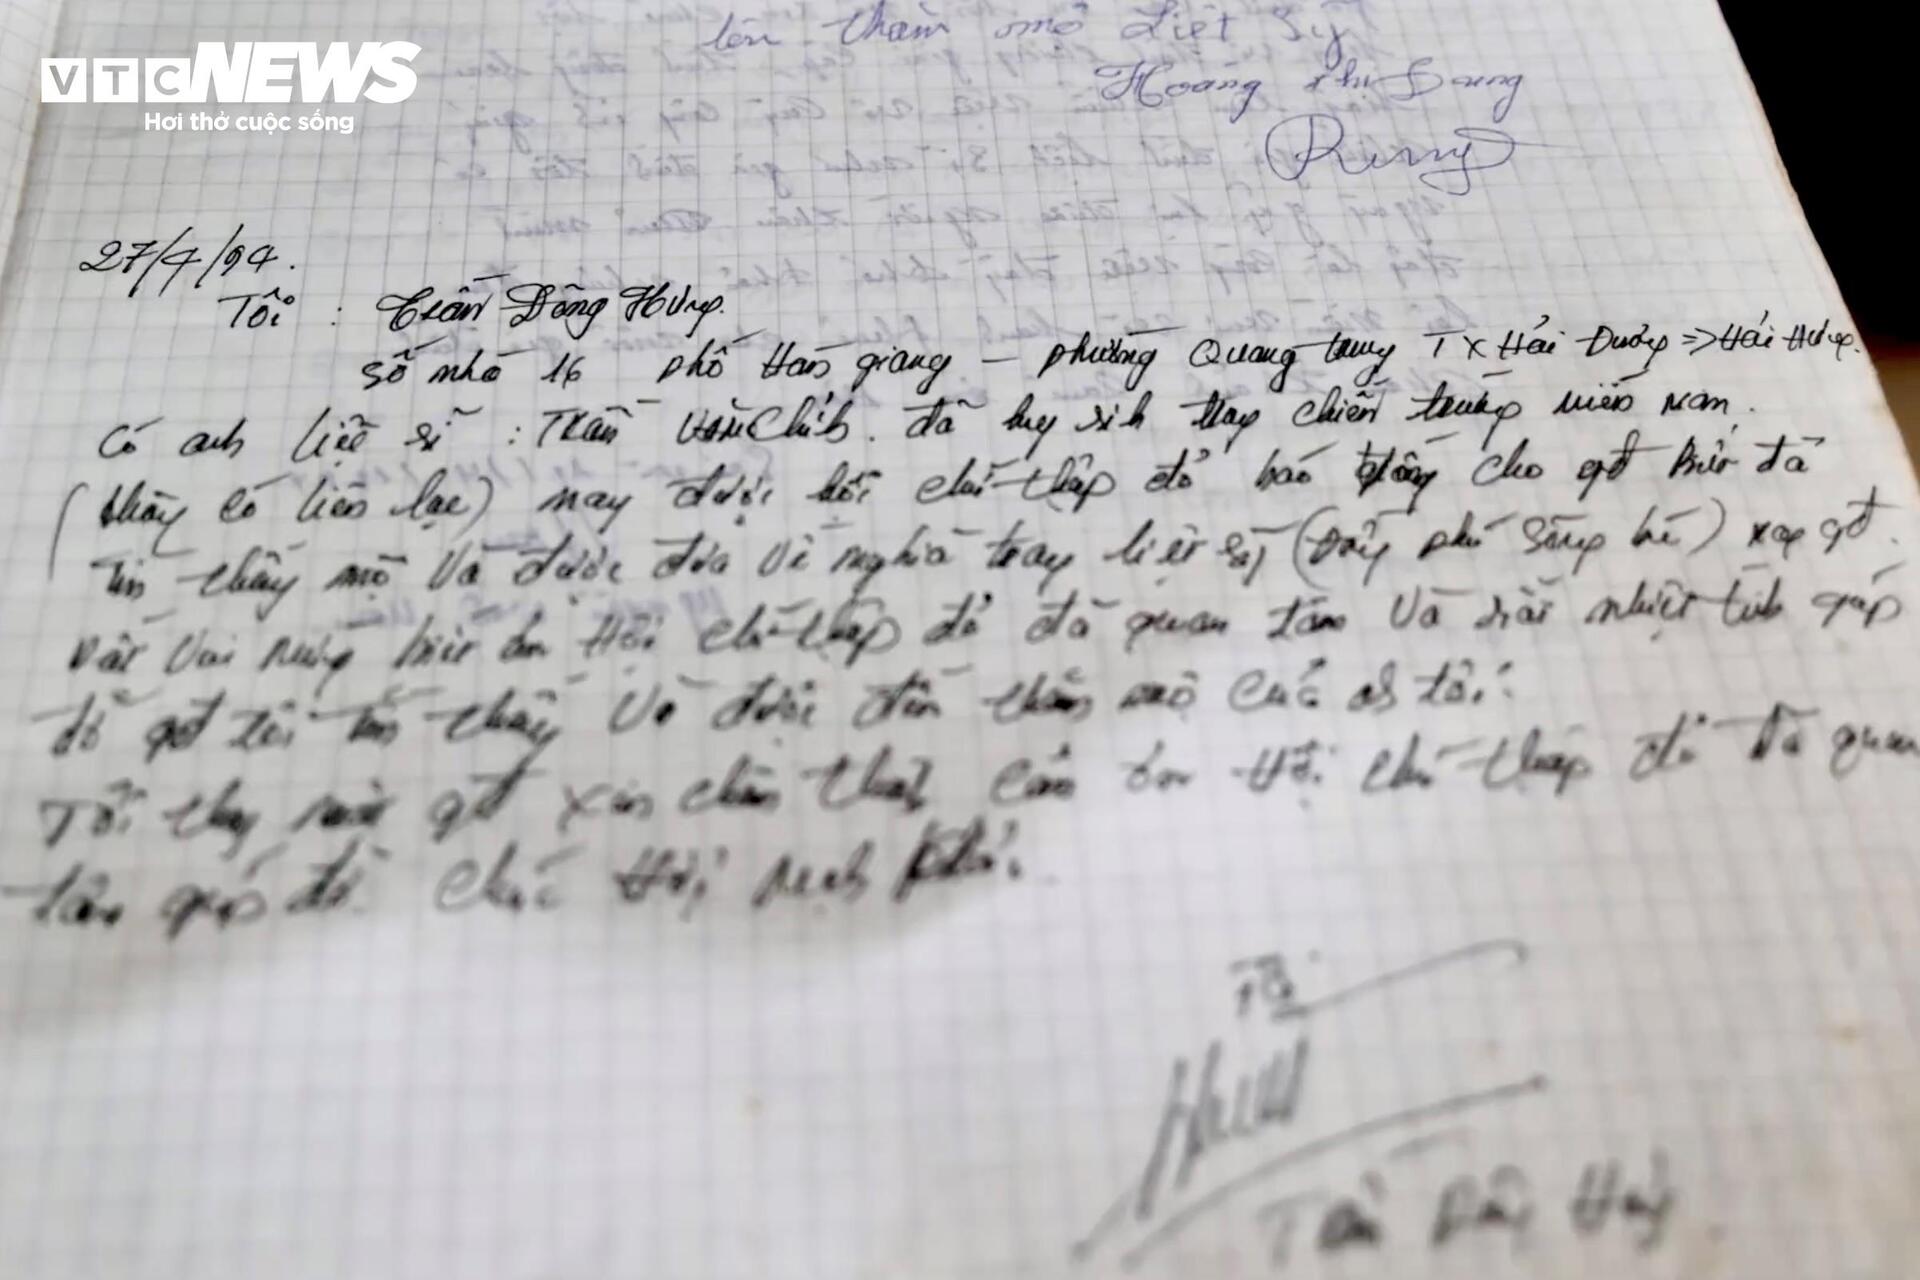 lên thăm mộ Liệt Sỹ
VTC NEWS
Hoàng Thị Dung
Hơi thở cuộc sống
27/4/94.
Tôi : Trần Đông Hưng.
Số nhà 16 phố Hàn giang – phường Quang trung TX Hải Dương => Hải Hưng.
Có anh liệt sĩ : Trần Văn Chính. đã hy sinh tại chiến trường miền nam.
(không có liên lạc) nay được hội chữ thập đỏ báo cho gđ biết đã
Tìm thấy mộ và được đưa về nghĩa trang liệt sỹ (Đồng phú Sông bé)
rất vui mừng biết ơn Hội chữ thập đỏ đã quan tâm và rất nhiệt tình giúp
đỡ gđ tôi tìm thấy và được đến thăm mộ của a tôi.
Tôi thay mặt gđ xin chân thành cảm ơn Hội chữ thập đỏ đã quan
tâm giúp đỡ. Chúc Hội mạnh khỏe.
Trần Đông Hưng